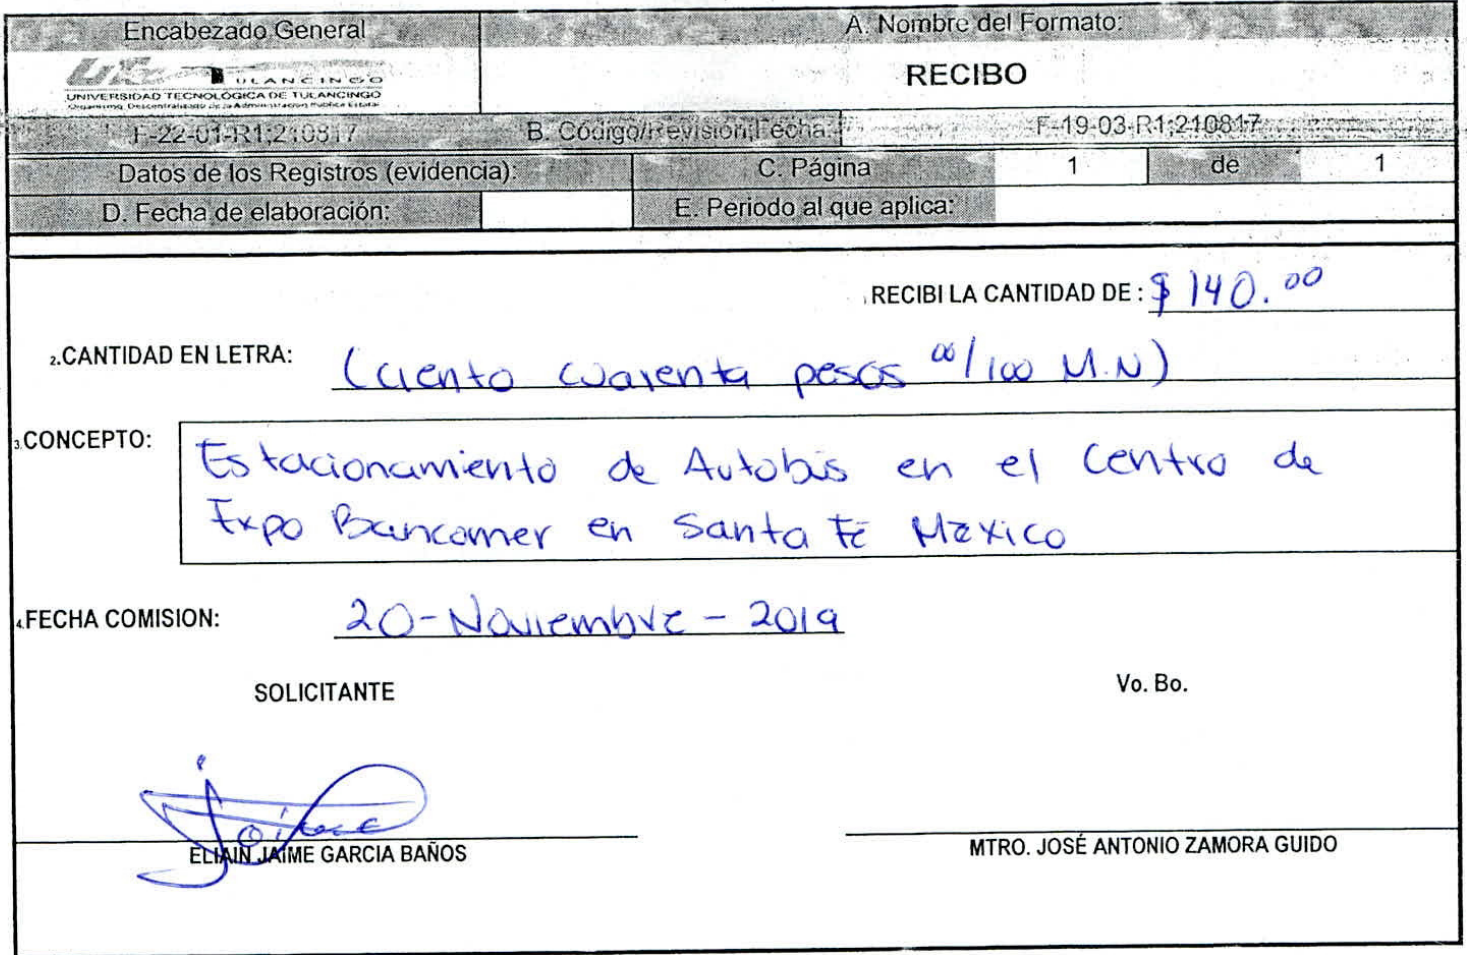 Encabezado General
A. Nombre del Formato:
TULANCINGO
UNIVERSIDAD TECNOLÓGICA DE TULANCINGO
Organismo Descentralizado de la Administración Pública Estatal
RECIBO
F-22-01-R1;210817
B. Código/Revisión;Fecha:
F-19-03-R1;210817
Datos de los Registros (evidencia):
C. Página
1
de
1
D. Fecha de elaboración:
E. Periodo al que aplica:
1.RECIBI LA CANTIDAD DE : $ 140.00
2.CANTIDAD EN LETRA: (Ciento cuarenta pesos 00/100 M.N)
3.CONCEPTO: Estacionamiento de Autobús en el Centro de
Expo Bancomer en Santa Fé México
4.FECHA COMISION: 20-Noviembre-2019
SOLICITANTE
Vo. Bo.
ELIAIN JAIME GARCIA BAÑOS
MTRO. JOSÉ ANTONIO ZAMORA GUIDO